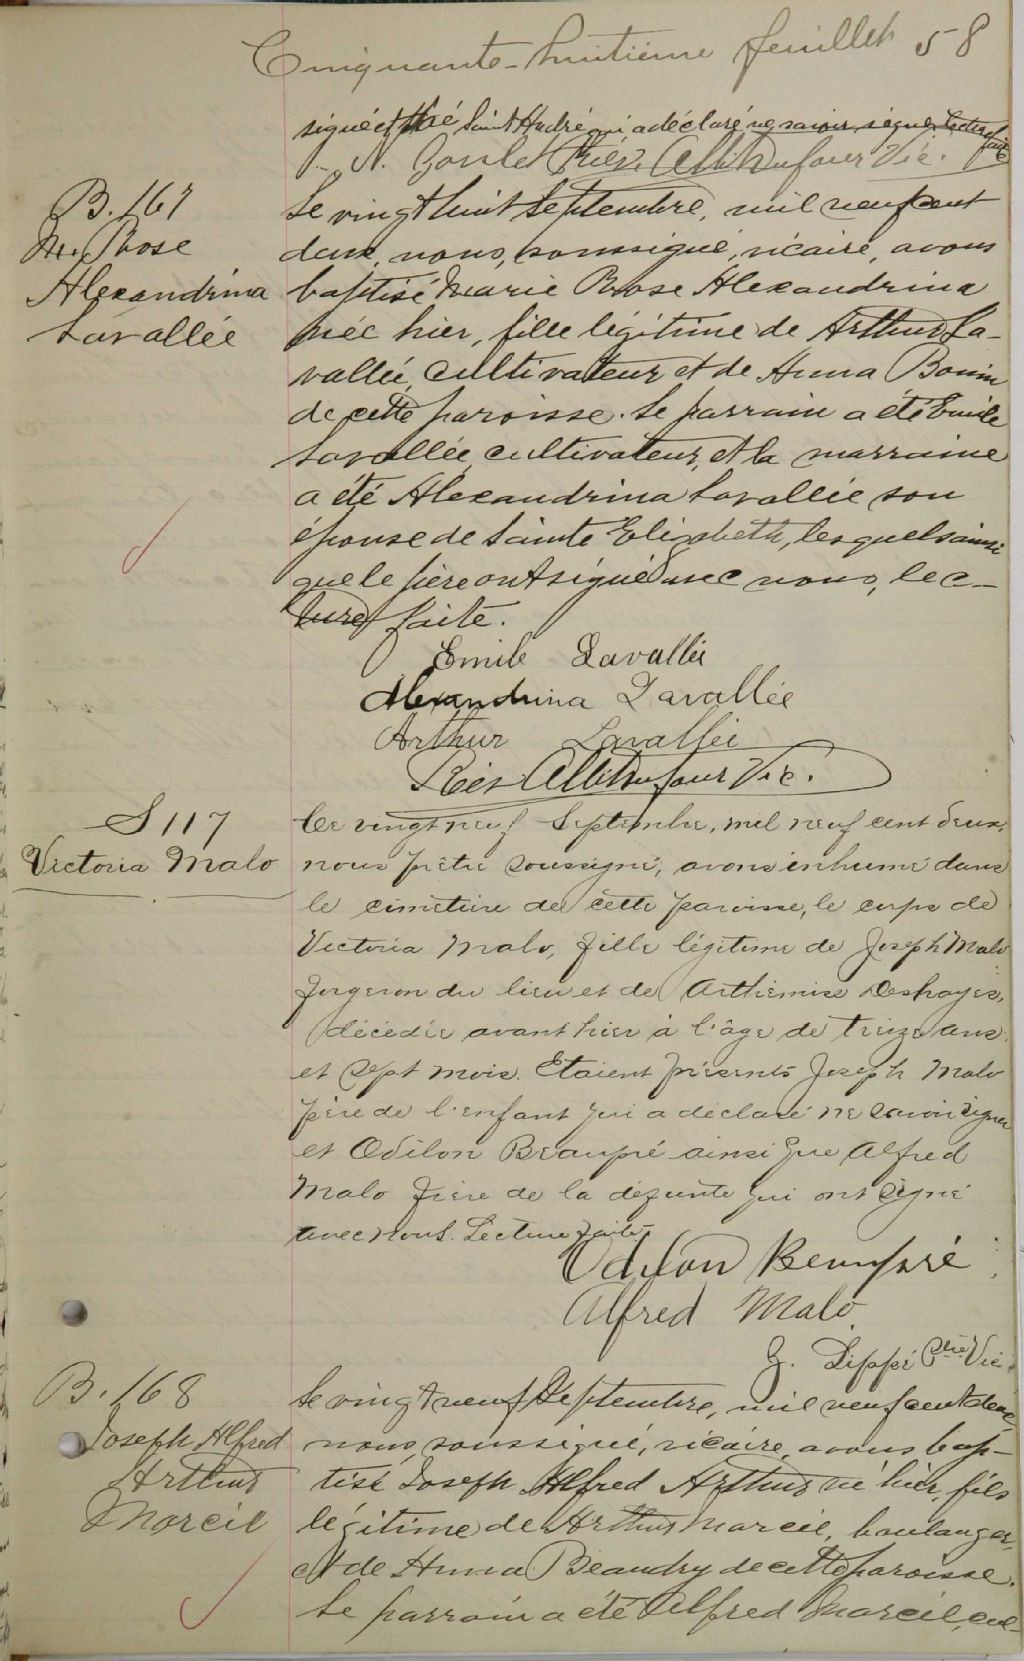 Cinquante-huitième feuillet 58
signé et Saint André qui a déclaré ne savoir signer. Lecture faite
Vic.
B. 167
M. Rose
Alexandrina
Lavallée
Le vingt huit Septembre, mil neuf cent
deux, nous, soussigné, vicaire, avons
baptisé Marie Rose Alexandrina
née hier, fille légitime de Arthur La-
vallée, cultivateur et de Anna Bonin
de cette paroisse. Le parrain a été Emile
Lavallée, cultivateur, et la marraine
a été Alexandrina Lavallée son
épouse de Sainte Elizabeth, lesquels ainsi
que le père ont signé avec nous, lec-
ture faite.
Emile Lavallée
Alexandrina Lavallée
Arthur Lavallée
Dufour Vic.
S 117
Victoria Malo
Ce vingt neuf Septembre, mil neuf cent deux,
nous prêtre soussigné, avons inhumé dans
le cimetière de cette paroisse, le corps de
Victoria Malo, fille légitime de Joseph Malo
forgeron du lieu et de Arthémise Deshayes,
décédée avant hier à l'âge de treize ans
et sept mois. Etaient présents Joseph Malo
père de l'enfant qui a déclaré ne savoir signer
et Odilon Beaupré ainsi que Alfred
Malo frère de la défunte qui ont signé
avec nous. Lecture faite
Odilon Beaupré
Alfred Malo
Z. Dippé Ptre Vic
B. 168
Joseph Alfred
Arthur
Marcil
Le vingt neuf Septembre, mil neuf cent deux,
nous, soussigné, vicaire, avons bap-
tisé Joseph Alfred Arthur né hier, fils
légitime de Arthur Marcil, boulanger,
et de Anna Beaudry de cette paroisse.
Le parrain a été Alfred Marcil, cul-